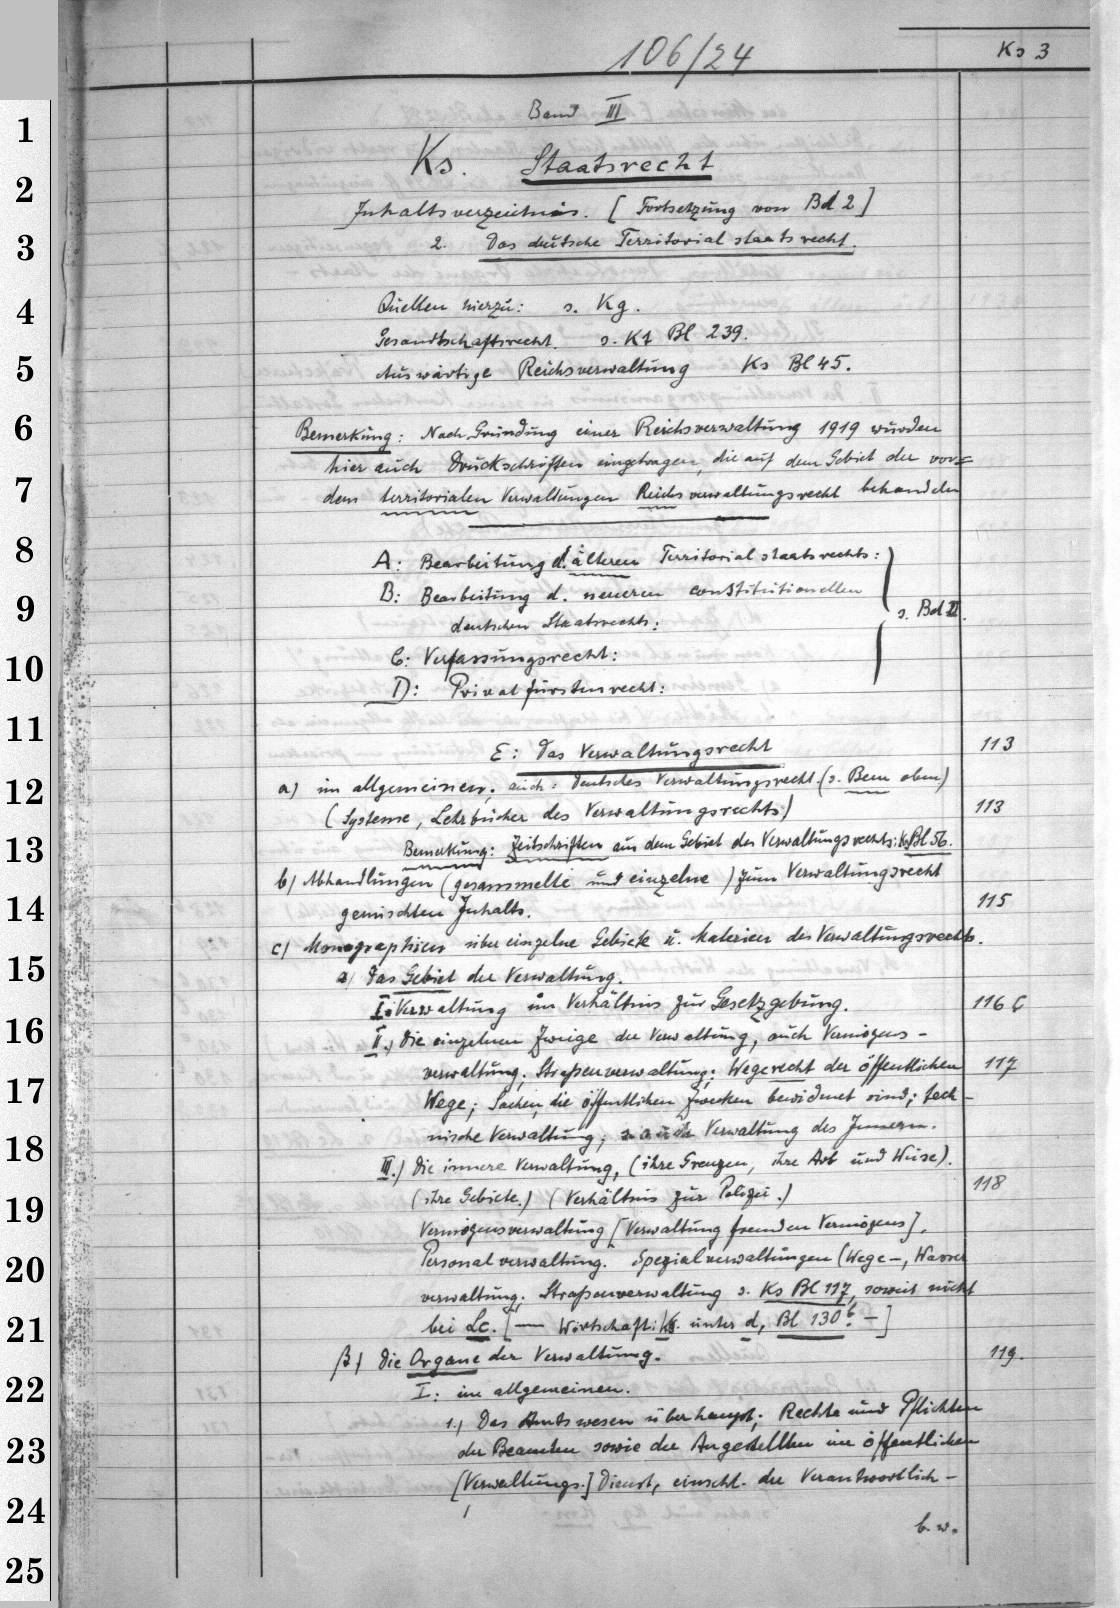 106/24
Ks 3
Band III
Ks. Staatsrecht
Inhaltsverzeichnis. [Fortsetzung von Bd 2]
2. Das deutsche Territorialstaatsrecht.
Quellen hierzu: s. Kg.
Gesandtschaftsrecht. s. Kf Bl 239.
Auswärtige Reichsverwaltung Ks Bl 45.
Bemerkung: Nach Gründung einer Reichsverwaltung 1919 wurden
hier auch Druckschriften eingetragen, die auf dem Gebiet der vor=
dem territorialen Verwaltungen Reichsverwaltungsrecht behandeln
A: Bearbeitung d. älteren Territorialstaatsrechts:
B: Bearbeitung d. neueren constitutionellen
deutschen Staatsrechts:
s. Bd II.
C: Verfassungsrecht:
D: Privatfürstenrecht:
E: Das Verwaltungsrecht 113
a) im allgemeinen; auch: Deutsches Verwaltungsrecht. (s. Bem oben)
(Systeme, Lehrbücher des Verwaltungsrechts) 113
Bemerkung: Zeitschriften aus dem Gebiet des Verwaltungsrechts: Ks Bl 56.
b) Abhandlungen (gesammelte und einzelne) zum Verwaltungsrecht
gemischten Inhalts. 115
c) Monographien über einzelne Gebiete u. Materien des Verwaltungsrechts.
a) Das Gebiet der Verwaltung.
I: Verwaltung im Verhältnis zur Gesetzgebung. 116 c
II.) Die einzelnen Zweige der Verwaltung, auch Vermögens-
verwaltung; Straßenverwaltung; Wegerecht der öffentlichen 117
Wege; Sachen, die öffentlichen Zwecken bewidmet sind; tech-
nische Verwaltung; s. auch Verwaltung des Innern.
III.) Die innere Verwaltung, (ihre Grenzen, ihre Art und Weise).
(ihre Gebiete.) (Verhältnis zur Polizei.) 118
Vermögensverwaltung [Verwaltung fremden Vermögens].
Personalverwaltung. Spezialverwaltungen (Wege-, Wasser
verwaltung; Straßenverwaltung s. Ks Bl 117, soweit nicht
bei Lc. [— Wirtschaft: Ks. unter d, Bl 130 b. —]
β) Die Organe der Verwaltung. 119.
I: im allgemeinen.
1.) Das Amtswesen überhaupt; Rechte und Pflichten
der Beamten sowie der Angestellten im öffentlichen
[Verwaltungs.] Dienst, einschl. der Verantwortlich-
b. w.
1
2
3
4
5
6
7
8
9
10
11
12
13
14
15
16
17
18
19
20
21
22
23
24
25